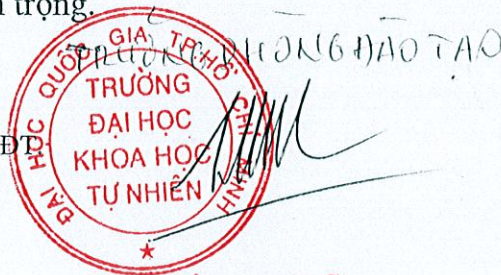 trọng.
TRƯỞNG PHÒNG ĐÀO TẠO
ĐẠI HỌC QUỐC GIA TP.HỒ CHÍ MINH
TRƯỜNG
ĐẠI HỌC
KHOA HỌC
TỰ NHIÊN
ĐT